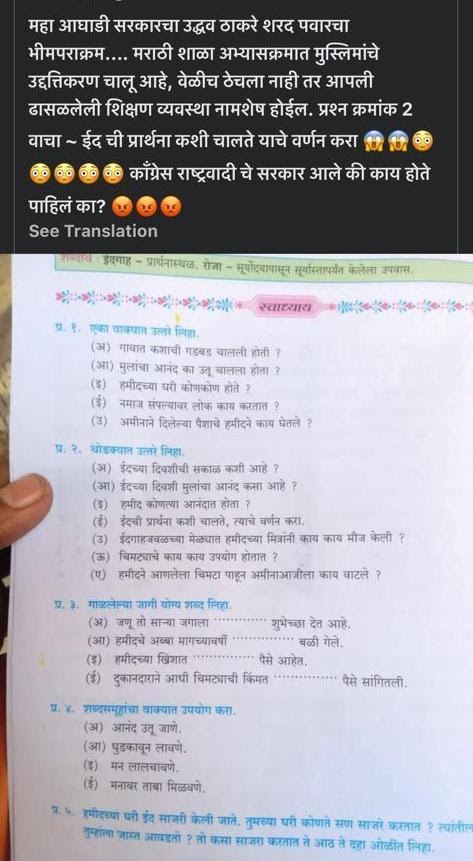 महा आघाडी सरकारचा उद्धव ठाकरे शरद पवारचा
भीमपराक्रम.... मराठी शाळा अभ्यासक्रमात मुस्लिमांचे
उद्दत्तिकरण चालू आहे, वेळीच ठेचला नाही तर आपली
ढासळलेली शिक्षण व्यवस्था नामशेष होईल. प्रश्न क्रमांक 2
वाचा ~ ईद ची प्रार्थना कशी चालते याचे वर्णन करा 😱😱😳
😳😳😳😳 काँग्रेस राष्ट्रवादी चे सरकार आले की काय होते
पाहिलं का? 😡😡😡
See Translation
शब्दार्थ : ईदगाह – प्रार्थनास्थळ. रोजा – सूर्योदयापासून सूर्यास्तापर्यंत केलेला उपवास.
स्वाध्याय
प्र. १. एका वाक्यात उत्तरे लिहा.
(अ) गावात कशाची गडबड चालली होती ?
(आ) मुलांचा आनंद का उतू चालला होता ?
(इ) हमीदच्या घरी कोणकोण होते ?
(ई) नमाज संपल्यावर लोक काय करतात ?
(उ) अमीनाने दिलेल्या पैशाचे हमीदने काय घेतले ?
प्र. २. थोडक्यात उत्तरे लिहा.
(अ) ईदच्या दिवशीची सकाळ कशी आहे ?
(आ) ईदच्या दिवशी मुलांचा आनंद कसा आहे ?
(इ) हमीद कोणत्या आनंदात होता ?
(ई) ईदची प्रार्थना कशी चालते, त्याचे वर्णन करा.
(उ) ईदगाहजवळच्या मेळ्यात हमीदच्या मित्रांनी काय काय मौज केली ?
(ऊ) चिमट्याचे काय काय उपयोग होतात ?
(ए) हमीदने आणलेला चिमटा पाहून अमीनाआजीला काय वाटले ?
प्र. ३. गाळलेल्या जागी योग्य शब्द लिहा.
(अ) जणू तो साऱ्या जगाला ............ शुभेच्छा देत आहे.
(आ) हमीदचे अब्बा मागच्यावर्षी ............ बळी गेले.
(इ) हमीदच्या खिशात ............ पैसे आहेत.
(ई) दुकानदाराने आधी चिमट्याची किंमत ............ पैसे सांगितली.
प्र. ४. शब्दसमूहांचा वाक्यात उपयोग करा.
(अ) आनंद उतू जाणे.
(आ) घुडकावून लावणे.
(इ) मन लालचावणे.
(ई) मनावर ताबा मिळवणे.
प्र. ५. हमीदच्या घरी ईद साजरी केली जाते. तुमच्या घरी कोणते सण साजरे करतात ? त्यांतील
तुम्हांला जास्त आवडतो ? तो कसा साजरा करतात ते आठ ते दहा ओळींत लिहा.